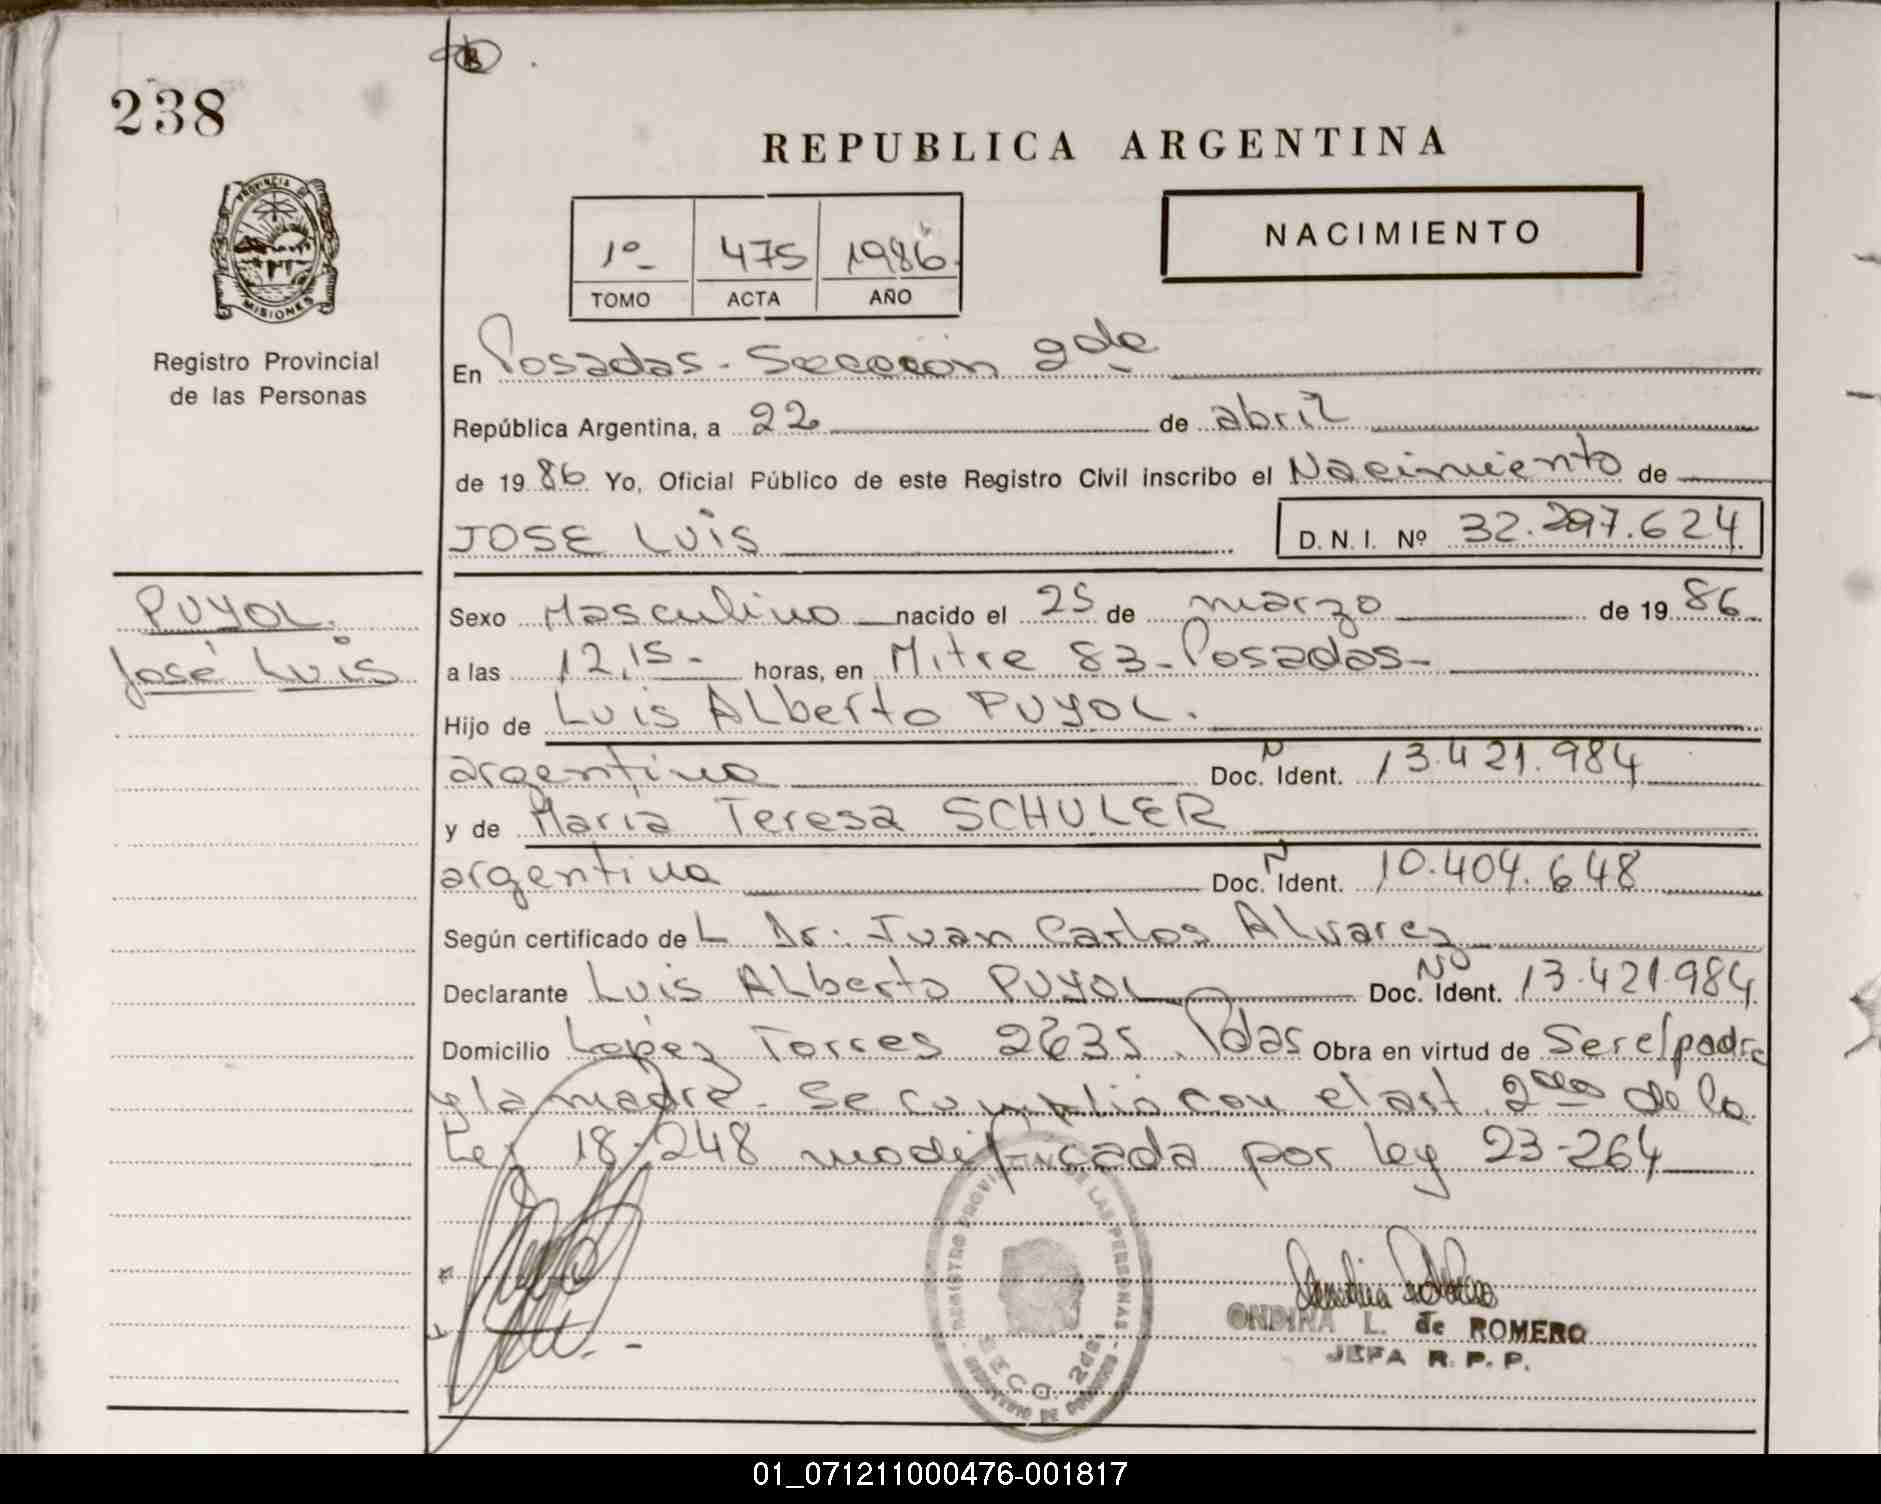 238
REPUBLICA ARGENTINA
PROVINCIA DE MISIONES
Registro Provincial
de las Personas
1º 475 1986
TOMO ACTA AÑO
NACIMIENTO
En Posadas - Sección 2da
República Argentina, a 22 de abril
de 1986 Yo, Oficial Público de este Registro Civil inscribo el Nacimiento de
JOSE LUIS D. N. I. Nº 32.297.624
PUYOL.
José Luis
Sexo Masculino nacido el 25 de marzo de 1986
a las 12,15- horas, en Mitre 83-Posadas-
Hijo de Luis ALberto PUYOL.
argentino Doc. N Ident. 13.421.984
y de María Teresa SCHULER
argentina Doc. N Ident. 10.404.648
Según certificado de L Dr. Juan Carlos ALvarez
Declarante Luis ALberto PUYOL Doc. Nº Ident. 13.421.984
Domicilio López Torres 2635. Pdas Obra en virtud de Ser el padre
y la madre - Se cumplio con el art. 2do de la
Ley 18.248 modificada por ley 23-264
REGISTRO PROVINCIAL DE LAS PERSONAS
SECC. 2da.
ONDINA L. de ROMERO
JEFA R. P. P.
01_071211000476-001817